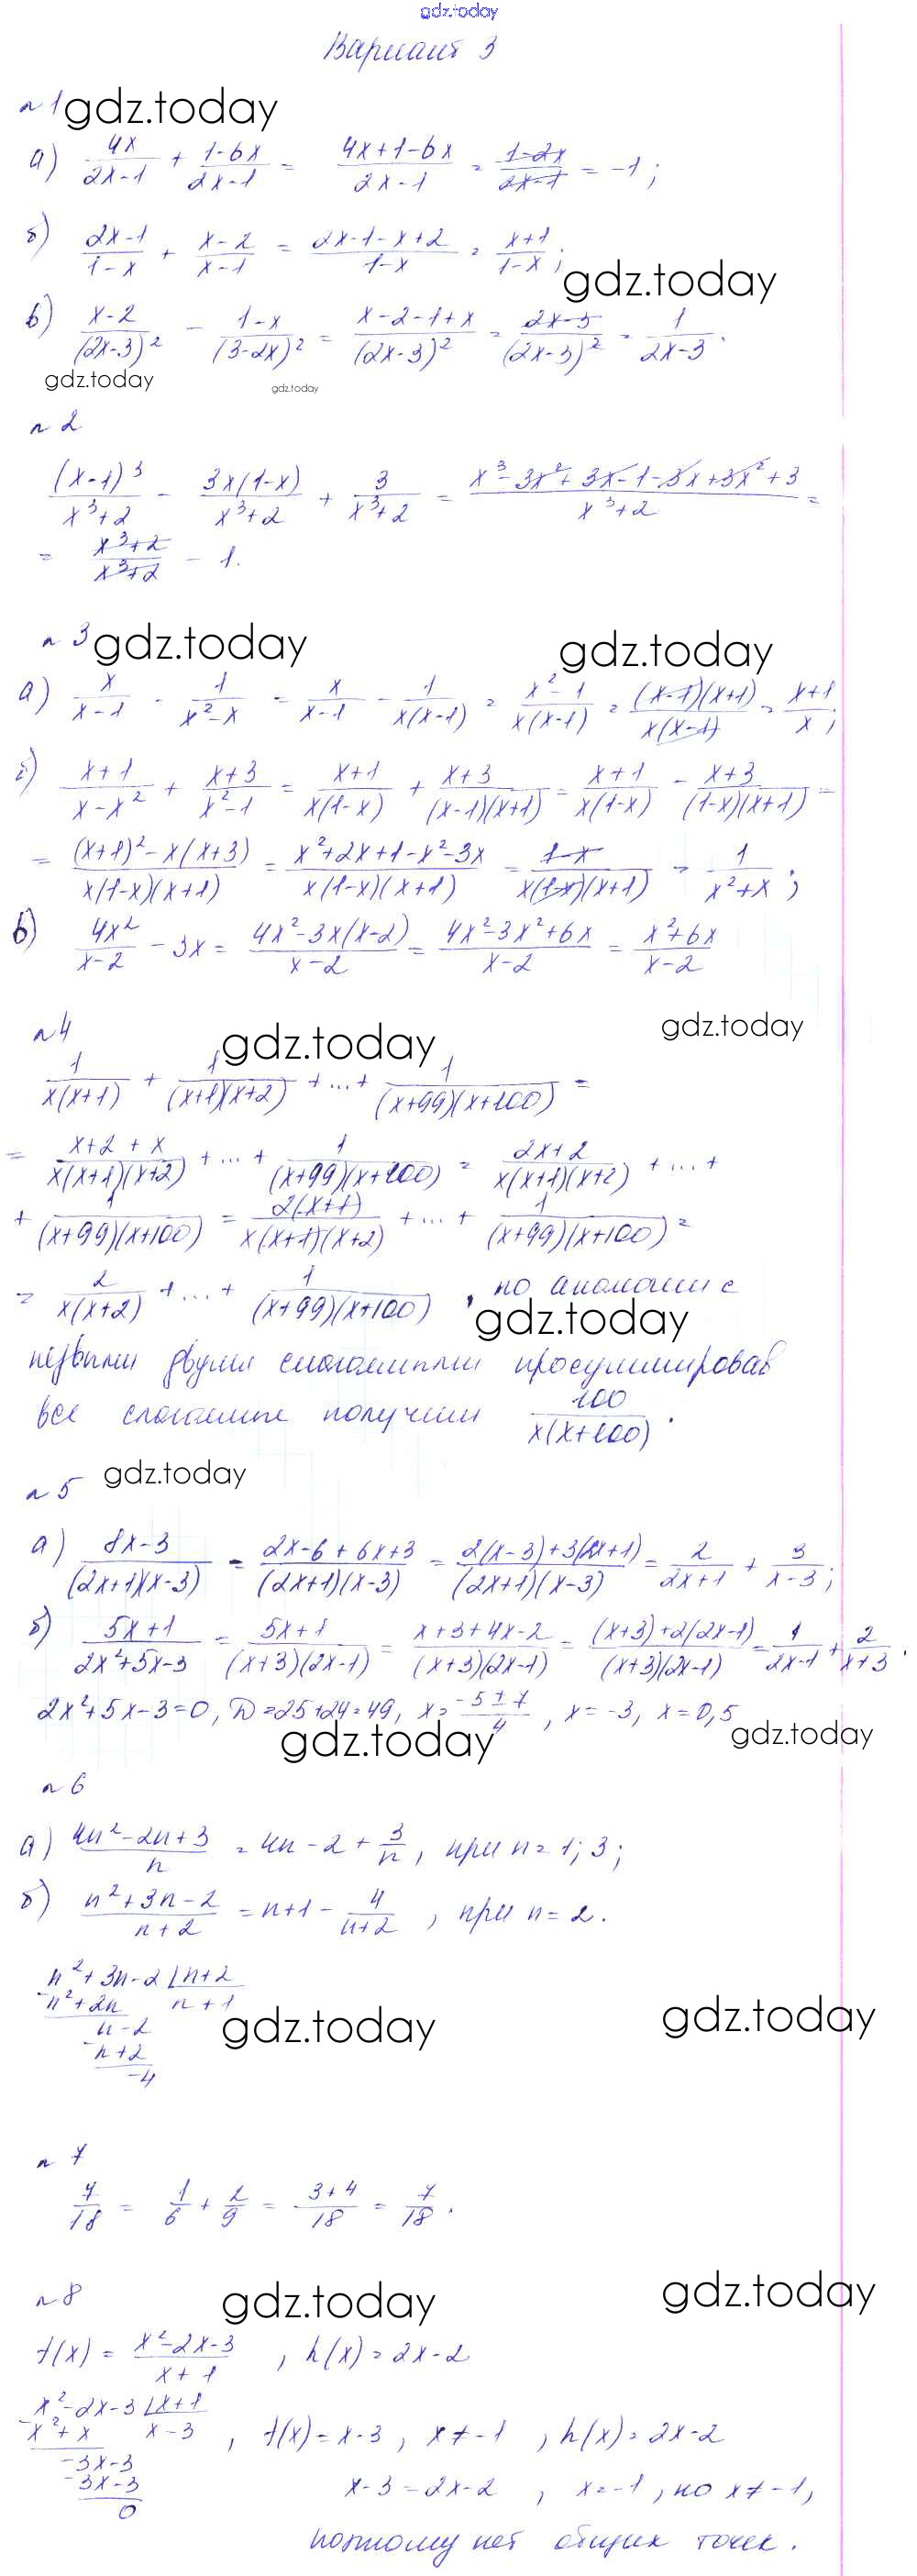 gdz.today
Вариант 3
n 1 gdz.today
а) 4x/(2x-1) + (1-6x)/(2x-1) = (4x+1-6x)/(2x-1) = (1-2x)/(2x-1) = -1;
б) (2x-1)/(1-x) + (x-2)/(x-1) = (2x-1-x+2)/(1-x) = (x+1)/(1-x);
gdz.today
в) (x-2)/(2x-3)² - (1-x)/(3-2x)² = (x-2-1+x)/(2x-3)² = (2x-3)/(2x-3)² = 1/(2x-3).
gdz.today gdz.today
n 2
(x-1)³/(x³+2) - 3x(1-x)/(x³+2) + 3/(x³+2) = (x³-3x²+3x-1-3x+3x²+3)/(x³+2) =
= (x³+2)/(x³+2) - 1.
n 3 gdz.today gdz.today
а) x/(x-1) - 1/(x²-x) = x/(x-1) - 1/(x(x-1)) = (x²-1)/(x(x-1)) = (x-1)(x+1)/(x(x-1)) = (x+1)/x;
б) (x+1)/(x-x²) + (x+3)/(x²-1) = (x+1)/(x(1-x)) + (x+3)/((x-1)(x+1)) = (x+1)/(x(1-x)) - (x+3)/((1-x)(x+1)) =
= ((x+1)²-x(x+3))/(x(1-x)(x+1)) = (x²+2x+1-x²-3x)/(x(1-x)(x+1)) = (1-x)/(x(1-x)(x+1)) = 1/(x²+x);
в) 4x²/(x-2) - 3x = (4x²-3x(x-2))/(x-2) = (4x²-3x²+6x)/(x-2) = (x²+6x)/(x-2)
n 4 gdz.today gdz.today
1/(x(x+1)) + 1/((x+1)(x+2)) + ... + 1/((x+99)(x+100)) =
= (x+2+x)/(x(x+1)(x+2)) + ... + 1/((x+99)(x+100)) = (2x+2)/(x(x+1)(x+2)) + ... +
+ 1/((x+99)(x+100)) = 2(x+1)/(x(x+1)(x+2)) + ... + 1/((x+99)(x+100)) =
= 2/(x(x+2)) + ... + 1/((x+99)(x+100)), по аналогии с
gdz.today
первыми двумя слагаемыми просуммировав
все слагаемые получим 100/(x(x+100)).
n 5 gdz.today
а) (8x-3)/((2x+1)(x-3)) = (2x-6+6x+3)/((2x+1)(x-3)) = (2(x-3)+3(2x+1))/((2x+1)(x-3)) = 2/(2x+1) + 3/(x-3);
б) (5x+1)/(2x²+5x-3) = (5x+1)/((x+3)(2x-1)) = (x+3+4x-2)/((x+3)(2x-1)) = ((x+3)+2(2x-1))/((x+3)(2x-1)) = 1/(2x-1) + 2/(x+3).
2x²+5x-3=0, D=25+24=49, x=(-5±7)/4, x=-3, x=0,5
gdz.today gdz.today
n 6
а) (4n²-2n+3)/n = 4n-2+3/n, при n=1; 3;
б) (n²+3n-2)/(n+2) = n+1-4/(n+2), при n=2.
n²+3n-2 | n+2
-n²+2n n+1
n-2
gdz.today gdz.today
-n+2
-4
n 7
7/18 = 1/6 + 2/9 = (3+4)/18 = 7/18.
n 8 gdz.today gdz.today
f(x) = (x²-2x-3)/(x+1), h(x)=2x-2
x²-2x-3 | x+1
-x²+x x-3, f(x)=x-3, x≠-1, h(x)=2x-2
-3x-3
-3x-3 x-3=2x-2, x=-1, но x≠-1,
0
поэтому нет общих точек.